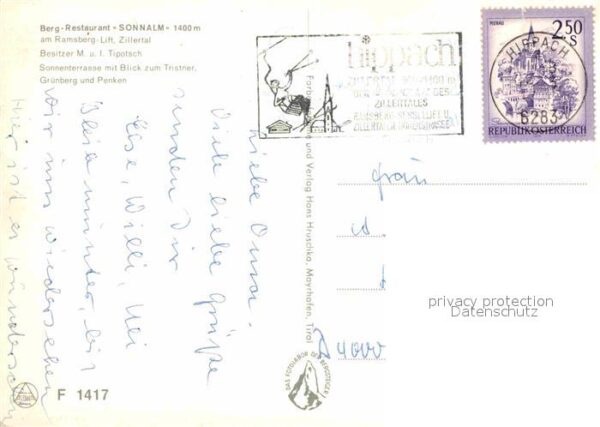 Berg-Restaurant »SONNALM« 1400 m
am Ramsberg-Lift, Zillertal
Besitzer M. u. I. Tipotsch
Sonnenterrasse mit Blick zum Tristner,
Grünberg und Penken
Liebe Oma.
Viele liebe Grüße
senden Dir
Ilse, Willi,
Bleib munter, bis
wir uns wiedersehen
Hier ist es wunderschön
F 1417
und Verlag Hans Hruschka, Mayrhofen, Tirol
DAS FOTOLABOR DER BERGSTEIGER
hippach
ZILLERTALES
HIPPACH
6283
2.50
S
MURAU
REPUBLIK ÖSTERREICH
Frau
4000
privacy protection
Datenschutz